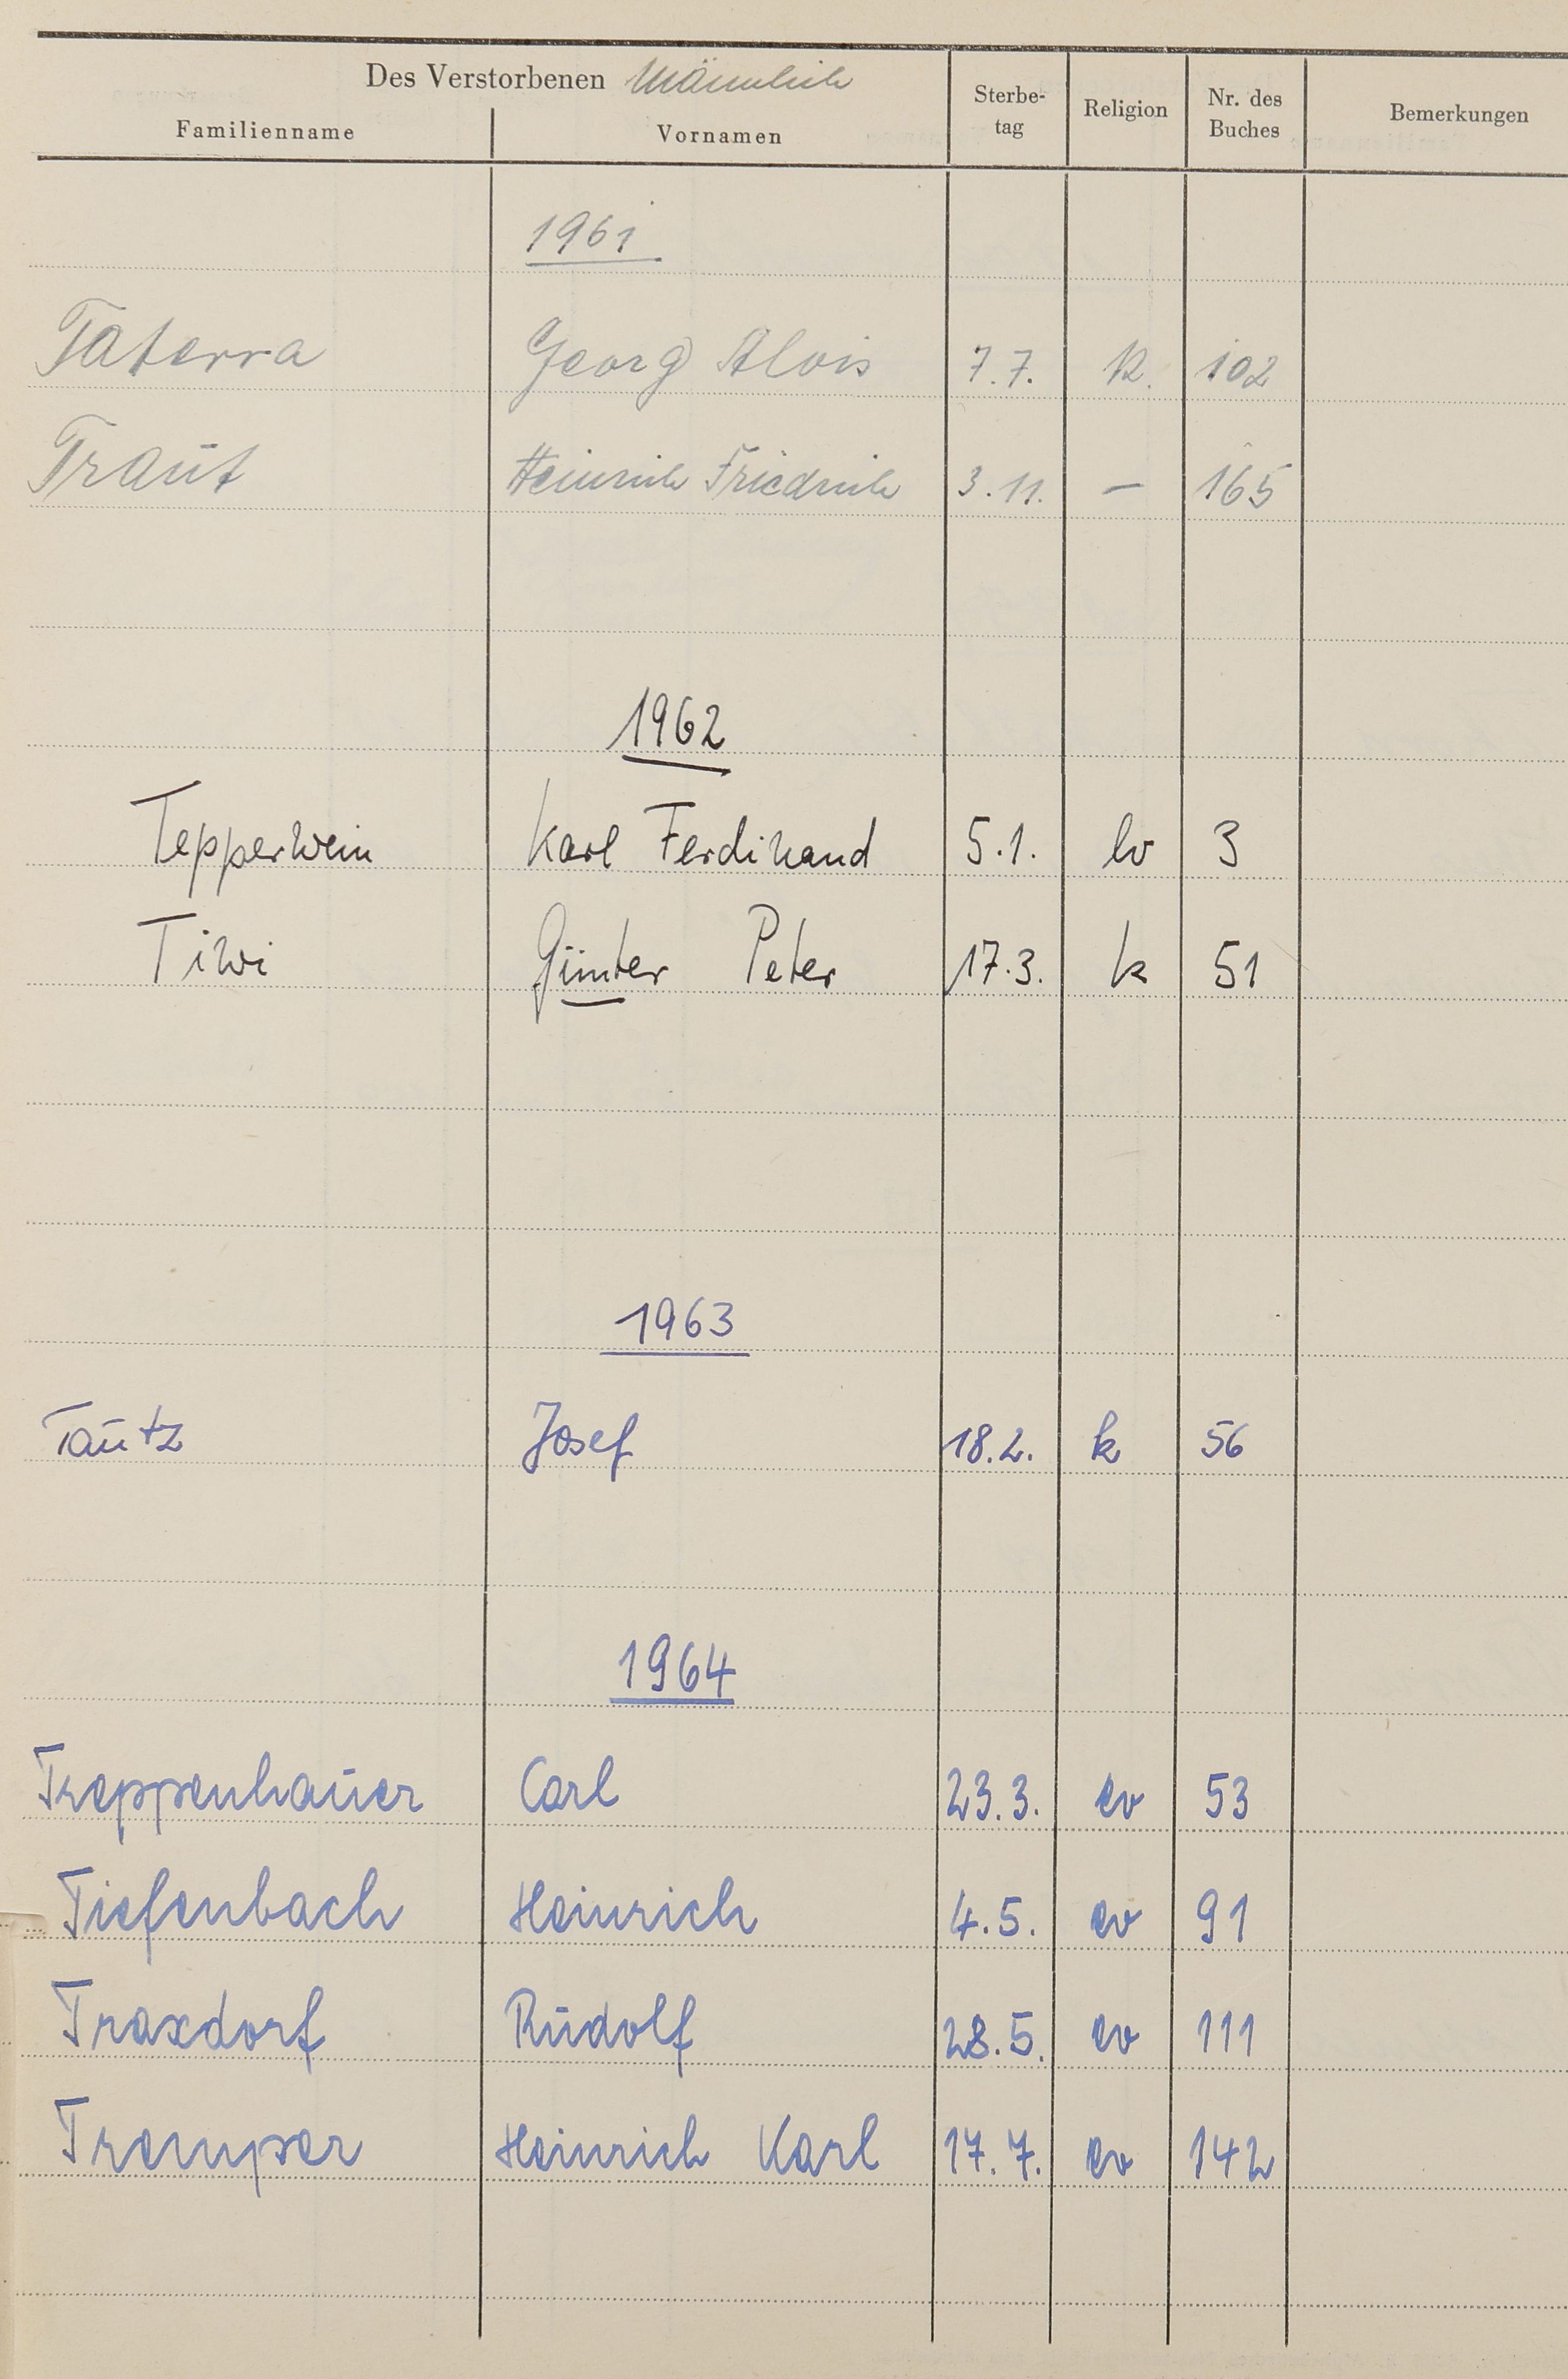 Des Verstorbenen Männlich
Familienname Vornamen Sterbe-tag Religion Nr. des Buches Bemerkungen
1961
Taterra Georg Alois 7.7. k. 102
Traut Heinrich Friedrich 3.11. — 165
1962
Tepperwein Karl Ferdinand 5.1. ev 3
Tiwi Günter Peter 17.3. k 51
1963
Tautz Josef 18.2. k 56
1964
Treppenhauer Carl 23.3. ev 53
Tiefenbach Heinrich 4.5. ev 91
Traxdorf Rudolf 28.5. ev 111
Tremper Heinrich Karl 17.7. ev 142